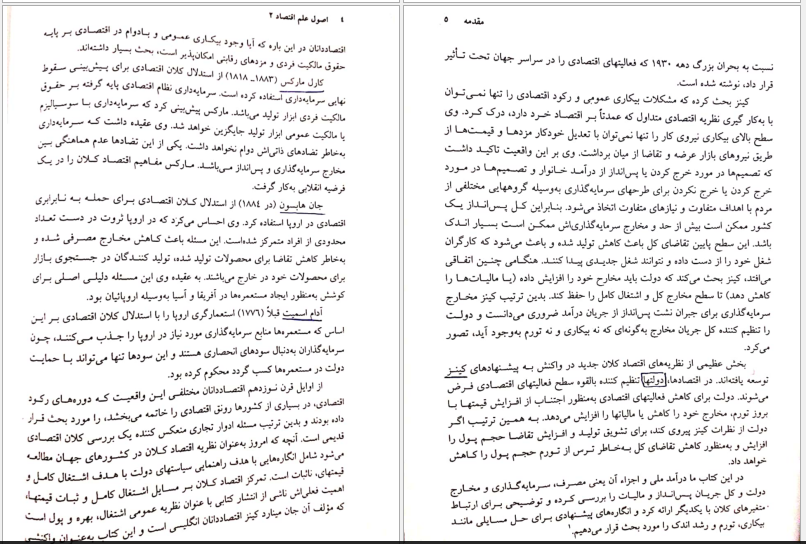 ۴ اصول علم اقتصاد ۲
اقتصاددانان در این باره که آیا وجود بیکاری عمومی و بادوام در اقتصادی بر پایه
حقوق مالکیت فردی و مزدهای رقابتی امکان‌پذیر است، بحث بسیار داشته‌اند.
کارل مارکس (۱۸۸۳ـ ۱۸۱۸) از استدلال کلان اقتصادی برای پیش‌بینی سقوط
نهایی سرمایه‌داری استفاده کرده است. سرمایه‌داری نظام اقتصادی پایه گرفته بر حقوق
مالکیت فردی ابزار تولید می‌باشد. مارکس پیش‌بینی کرد که سرمایه‌داری با سوسیالیزم
یا مالکیت عمومی ابزار تولید جایگزین خواهد شد. وی عقیده داشت که سرمایه‌داری
به‌خاطر تضادهای ذاتی‌اش دوام نخواهد داشت. یکی از این تضادها عدم هماهنگی بین
مخارج سرمایه‌گذاری و پس‌انداز می‌باشد. مارکس مفاهیم اقتصاد کلان را در یک
فرضیه انقلابی به‌کار گرفت.
جان هابسون (در ۱۸۸۴) از استدلال کلان اقتصادی برای حمله به نابرابری
اقتصادی در اروپا استفاده کرد. وی احساس می‌کرد که در اروپا ثروت در دست تعداد
محدودی از افراد متمرکز شده‌است. این مسئله باعث کاهش مخارج مصرفی شده و
به‌خاطر کاهش تقاضا برای محصولات تولید شده، تولید کنندگان در جستجوی بازار
برای محصولات خود در خارج می‌باشند. به عقیده وی این مسئله دلیلی اصلی برای
کوشش به‌منظور ایجاد مستعمره‌ها در آفریقا و آسیا به‌وسیله اروپائیان بود.
آدام اسمیت قبلاً (۱۷۷۶) استعمارگری اروپا را با استدلال کلان اقتصادی بر این
اساس که مستعمره‌ها منابع سرمایه‌گذاری مورد نیاز در اروپا را جذب می‌کنند، چون
سرمایه‌گذاران به‌دنبال سودهای انحصاری هستند و این سودها تنها می‌تواند با حمایت
دولت در مستعمره‌ها کسب گردد محکوم کرده بود.
از اوایل قرن نوزدهم اقتصاددانان مختلفی این واقعیت که دوره‌های رکود
اقتصادی، در بسیاری از کشورها رونق اقتصادی را خاتمه می‌بخشد، را مورد بحث قرار
داده بودند و بدین ترتیب مسئله ادوار تجاری منعکس کننده یک بررسی کلان اقتصادی
قدیمی است. آنچه که امروز به‌عنوان نظریه اقتصاد کلان در کشورهای جهان مطالعه
می‌شود شامل انگاره‌هایی با هدف راهنمایی سیاستهای دولت با هدف اشتغال کامل و
قیمتهای، ثابت است. تمرکز اقتصاد کلان بر مسایل اشتغال کامل و ثبات قیمتها،
اهمیت فعلی‌اش ناشی از انتشار کتابی با عنوان نظریه عمومی اشتغال، بهره و پول است
که مؤلف آن جان مینارد کینز اقتصاددانان انگلیسی است و این کتاب به‌عنوان واکنشی
مقدمه ۵
نسبت به بحران بزرگ دهه ۱۹۳۰ که فعالیتهای اقتصادی را در سراسر جهان تحت تأثیر
قرار داد، نوشته شده است.
کینز بحث کرده که مشکلات بیکاری عمومی و رکود اقتصادی را تنها نمی‌توان
با به‌کار گیری نظریه اقتصادی متداول که عمدتاً بر اقتصاد خرد دارد، درک کرد. وی
سطح بالای بیکاری نیروی کار را تنها نمی‌توان با تعدیل خودکار مزدها و قیمت‌ها از
طریق نیروهای بازار عرضه و تقاضا از میان برداشت. وی بر این واقعیت تاکید داشت
که تصمیم‌ها در مورد خرج کردن یا پس‌انداز از درآمد خانوار و تصمیم‌ها در مورد
خرج کردن یا خرج نکردن برای طرحهای سرمایه‌گذاری به‌وسیله گروههایی مختلفی از
مردم با اهداف متفاوت و نیازهای متفاوت اتخاذ می‌شود. بنابراین کل پس‌انداز یک
کشور ممکن است بیش از حد و مخارج سرمایه‌گذاری‌اش ممکن است بسیار اندک
باشد. این سطح پایین تقاضای کل باعث کاهش تولید شده و باعث می‌شود که کارگران
شغل خود را از دست داده و نتوانند شغل جدیدی پیدا کنند. هنگامی چنین اتفاقی
می‌افتد، کینز بحث می‌کند که دولت باید مخارج خود را افزایش داده (یا مالیات‌ها را
کاهش دهد) تا سطح مخارج کل و اشتغال کامل را حفظ کند. بدین ترتیب کینز مخارج
سرمایه‌گذاری برای جبران نشت پس‌انداز از جریان درآمد ضروری می‌دانست و دولت
را تنظیم کننده کل جریان مخارج به‌گونه‌ای که نه بیکاری و نه تورم به‌وجود آید، تصور
می‌کرد.
بخش عظیمی از نظریه‌های اقتصاد کلان جدید در واکنش به پیشنهادهای کینز
توسعه یافته‌اند. در اقتصادها، دولتها تنظیم کننده بالقوه سطح فعالیتهای اقتصادی فرض
می‌شوند. دولت برای کاهش فعالیتهای اقتصادی به‌منظور اجتناب از افزایش قیمتها با
بروز تورم، مخارج خود را کاهش یا مالیاتها را افزایش می‌دهد. به همین ترتیب اگر
دولت از نظرات کینز پیروی کند، برای تشویق تولید و افزایش تقاضا حجم پول را
افزایش و به‌منظور کاهش تقاضای کل به‌خاطر ترس از تورم حجم پول را کاهش
خواهد داد.
در این کتاب ما درآمد ملی و اجزاء آن یعنی مصرف، سرمایه‌گذاری و مخارج
دولت و کل جریان پس‌انداز و مالیات را بررسی کرده و توضیحی برای ارتباط
متغیرهای کلان با یکدیگر ارائه کرد و انگاره‌های پیشنهادی برای حل مسایلی مانند
بیکاری، تورم و رشد اندک را مورد بحث قرار می‌دهیم.۱